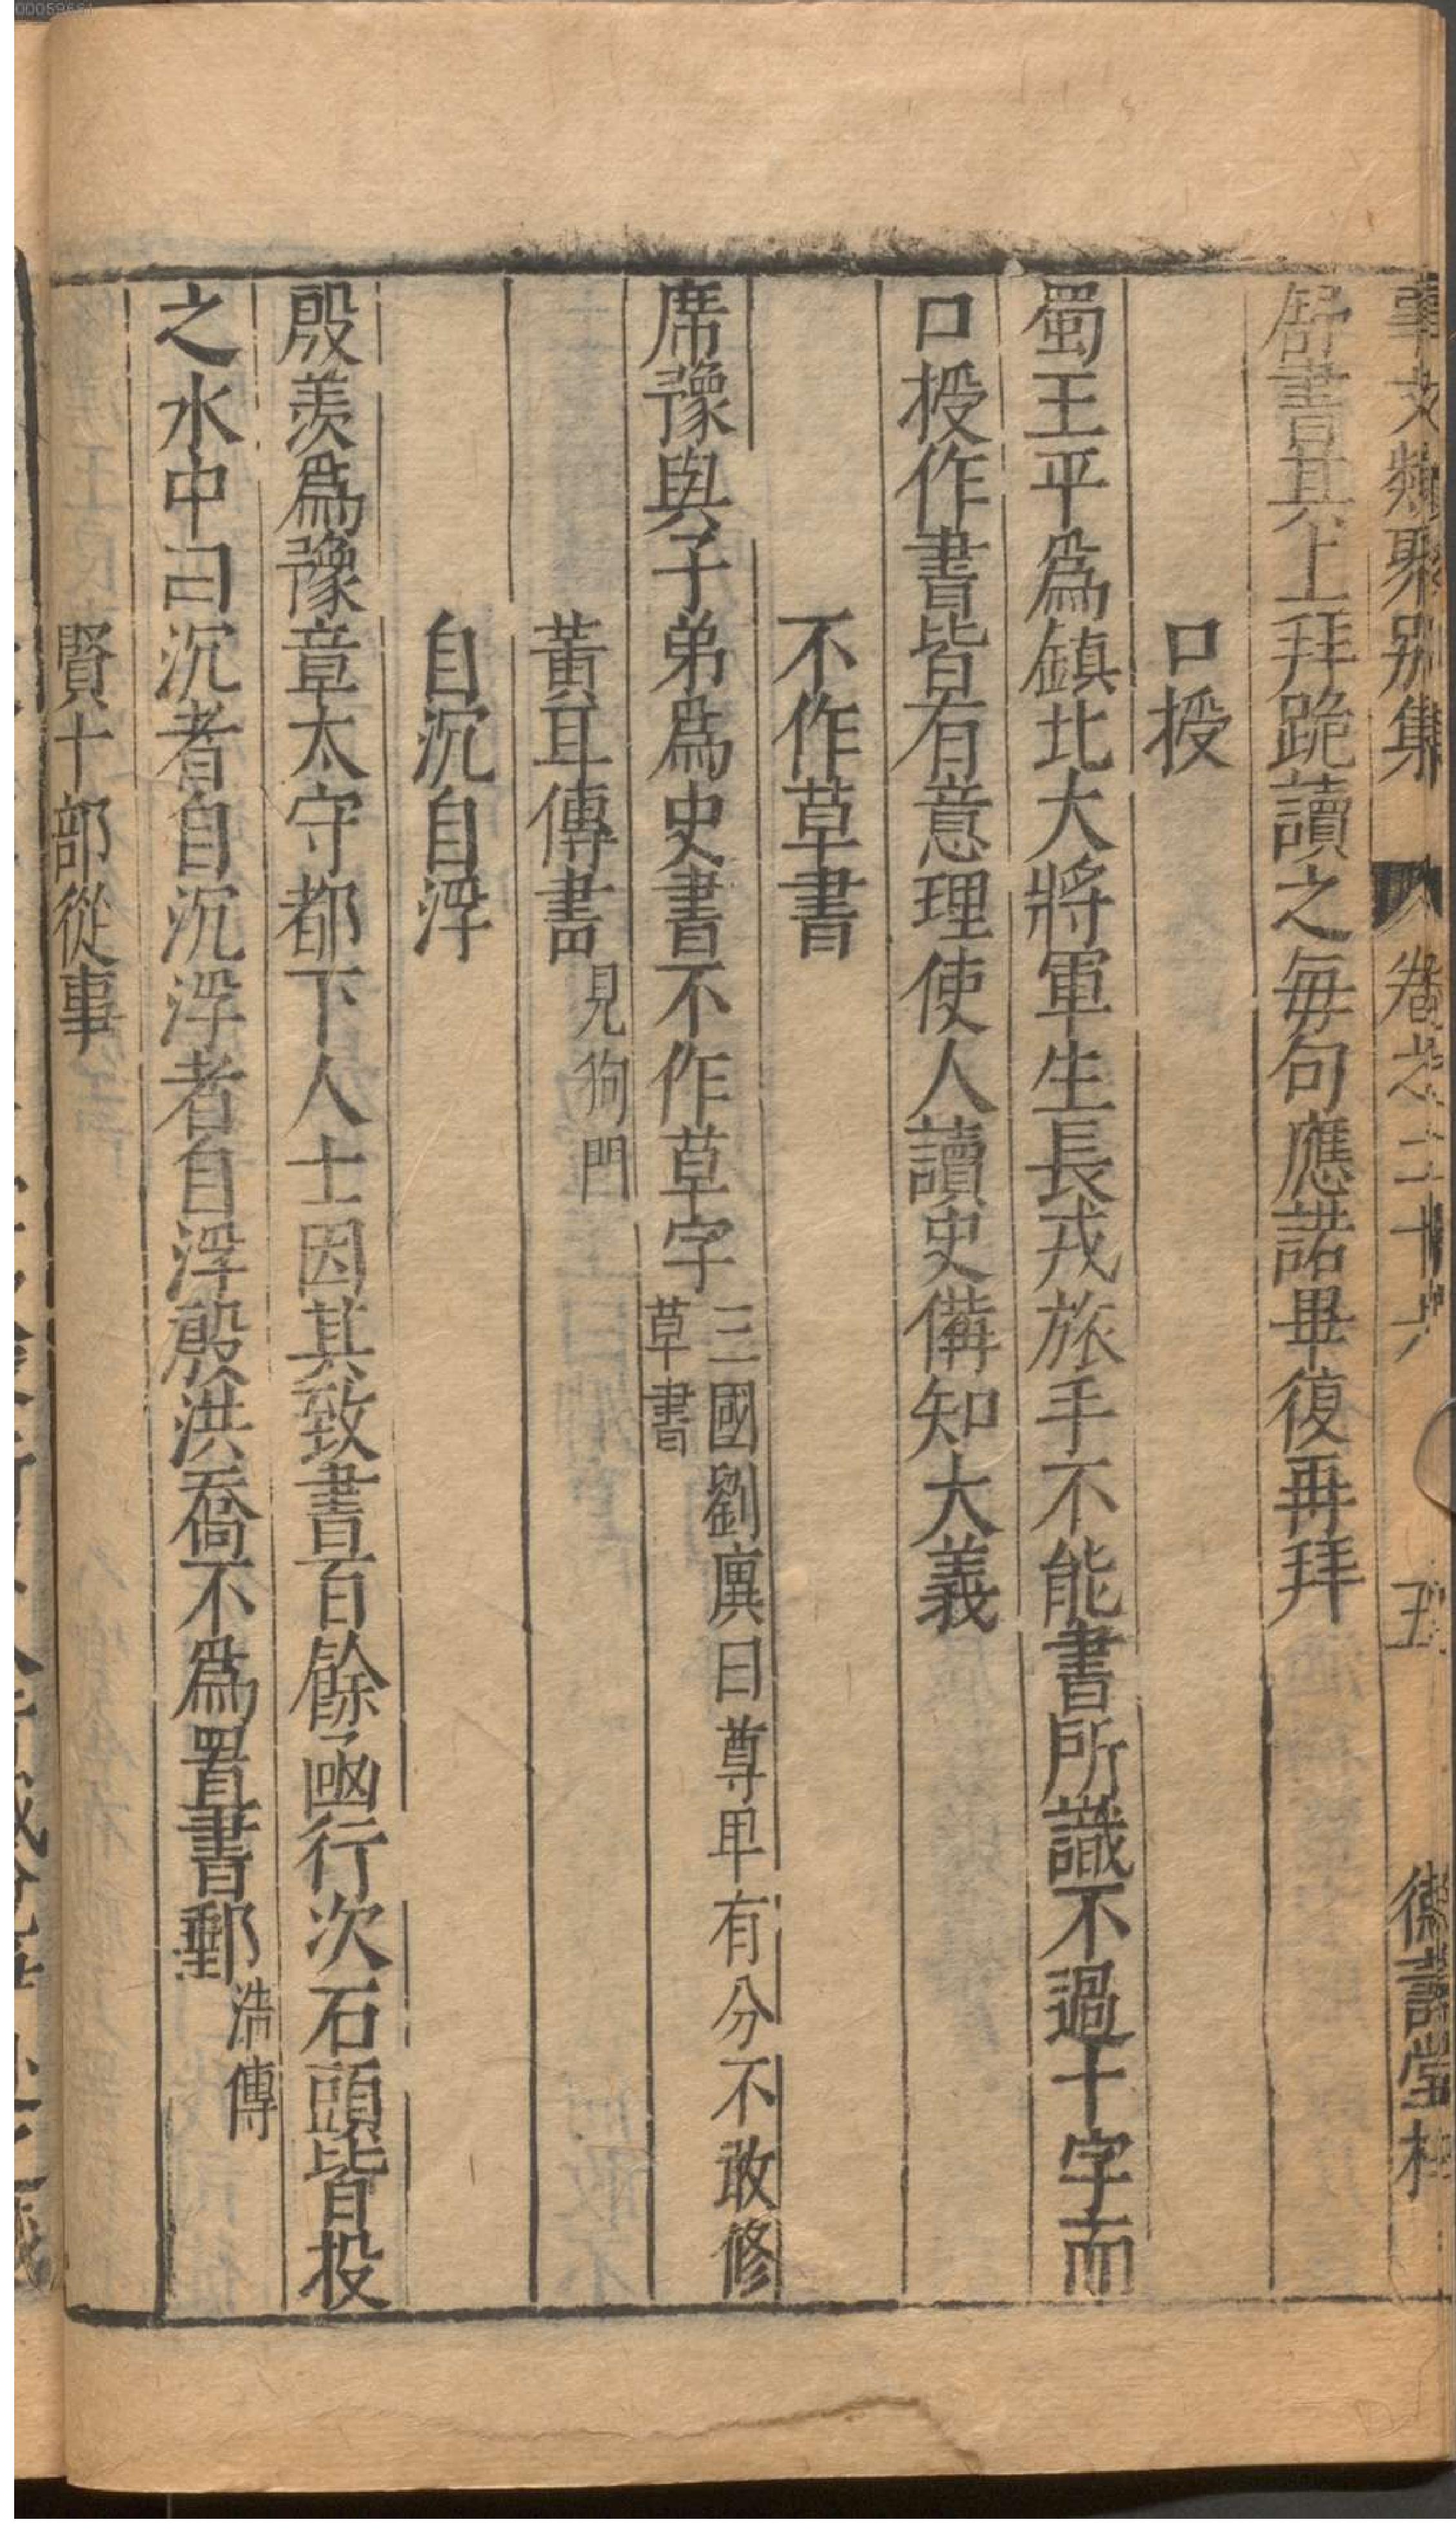 事文類聚别集 卷之二十六 五
舒書其上拜跪讀之每句應諾畢復再拜
口授
蜀王平爲鎮北大將軍生長戎旅手不能書所識不過十字而
口授作書皆有意理使人讀史備知大義
不作草書
席豫與子弟爲史書不作草字三國劉廙曰尊卑有分不敢修草書
黃耳傳書見狗門
自沉自浮
殷羨爲豫章太守都下人士因其致書百餘函行次石頭皆投
之水中曰沉者自沉浮者自浮殷洪喬不爲置書郵浩傳
賢十部從事